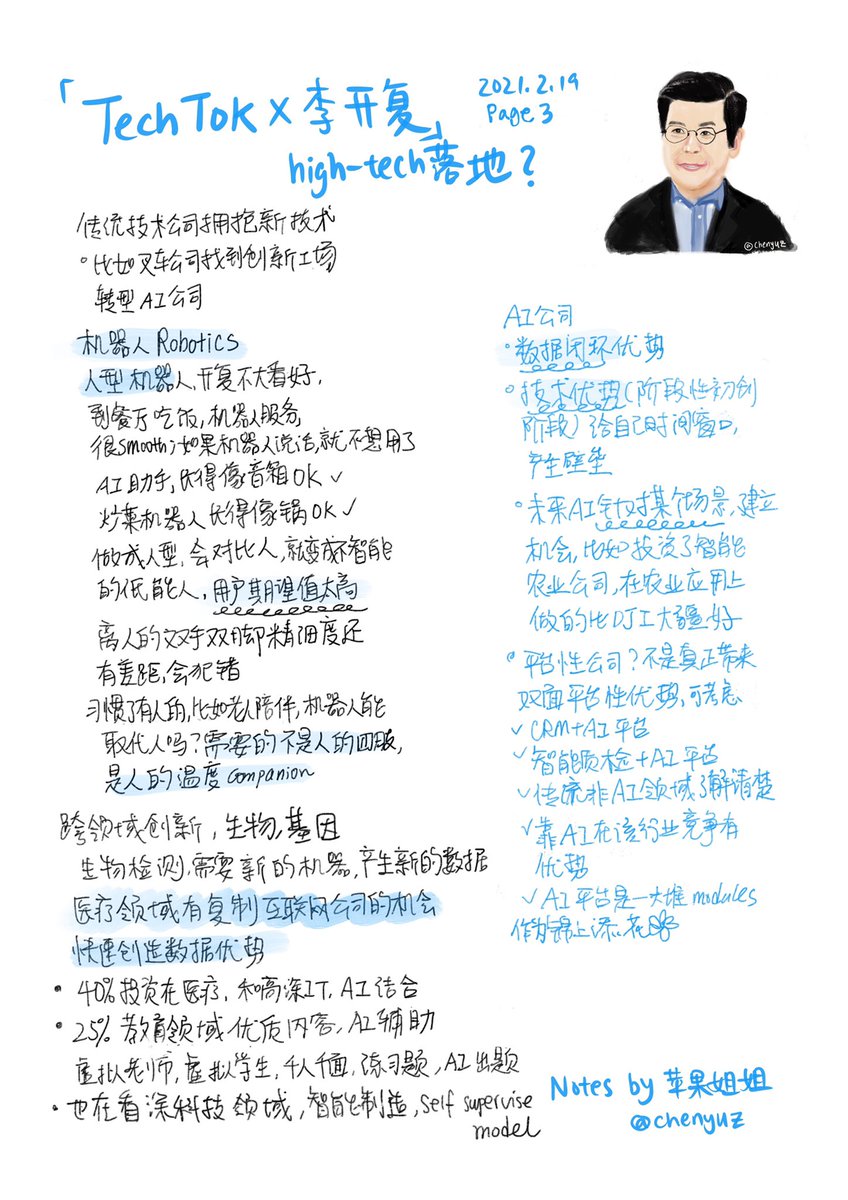 「TechTok×李开复」
2021.2.19
Page 3
high-tech落地?
@chenyuz
传统技术公司拥抱新技术
• 比如叉车公司找到创新工场
转型AI公司
机器人 Robotics
人型机器人,开复不大看好,
到餐厅吃饭,机器人服务,
很smooth;如果机器人说话,就不想用了
AI助手,长得像音箱OK ✓
炒菜机器人长得像锅OK ✓
做成人型,会对比人,就变成不智能
的低能人,用户期望值太高
离人的双手双脚精细度还
有差距,会犯错
习惯了有人的,比如老人陪伴,机器人能
取代人吗?需要的不是人的四肢,
是人的温度companion
跨领域创新,生物,基因
生物检测,需要新的机器,产生新的数据
医疗领域有复制互联网公司的机会
快速创造数据优势
• 40%投资在医疗,和高深IT,AI结合
• 25%教育领域优质内容,AI辅助
虚拟老师,虚拟学生,千人千面,练习题,AI出题
• 也在看深科技领域,智能制造,self supervise
model
AI公司
• 数据闭环优势
• 技术优势(阶段性初创
阶段)给自己时间窗口,
产生壁垒
• 未来AI针对某个场景,建立
机会,比如投资了智能
农业公司,在农业应用上
做的比DJI大疆好
• 平台性公司?不是真正带来
双面平台性优势,可考虑
✓ CRM+AI平台
✓ 智能质检+AI平台
✓ 传统非AI领域了解清楚
✓ 靠AI在该行业竞争有
优势
✓ AI平台是一大堆modules
作为锦上添花
Notes by 苹果姐姐
@chenyuz